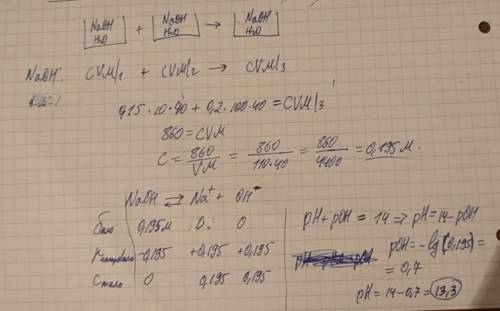 NaOH H₂O + NaOH H₂O → NaOH H₂O
NaOH: CVM|₁ + CVM|₂ → CVM|₃
0,15·10·40 + 0,2·100·40 = CVM|₃
860 = CVM
C = 860/VM = 860/110·40 = 860/4400 = 0,195 M.
NaOH ⇄ Na⁺ + OH⁻
Было 0,195M 0 0
-0,195 +0,195 +0,195
Стало 0 0,195 0,195
pH + pOH = 14 => pH = 14 - pOH
pOH = -lg(0,195) =
= 0,7
pH = 14 - 0,7 = 13,3